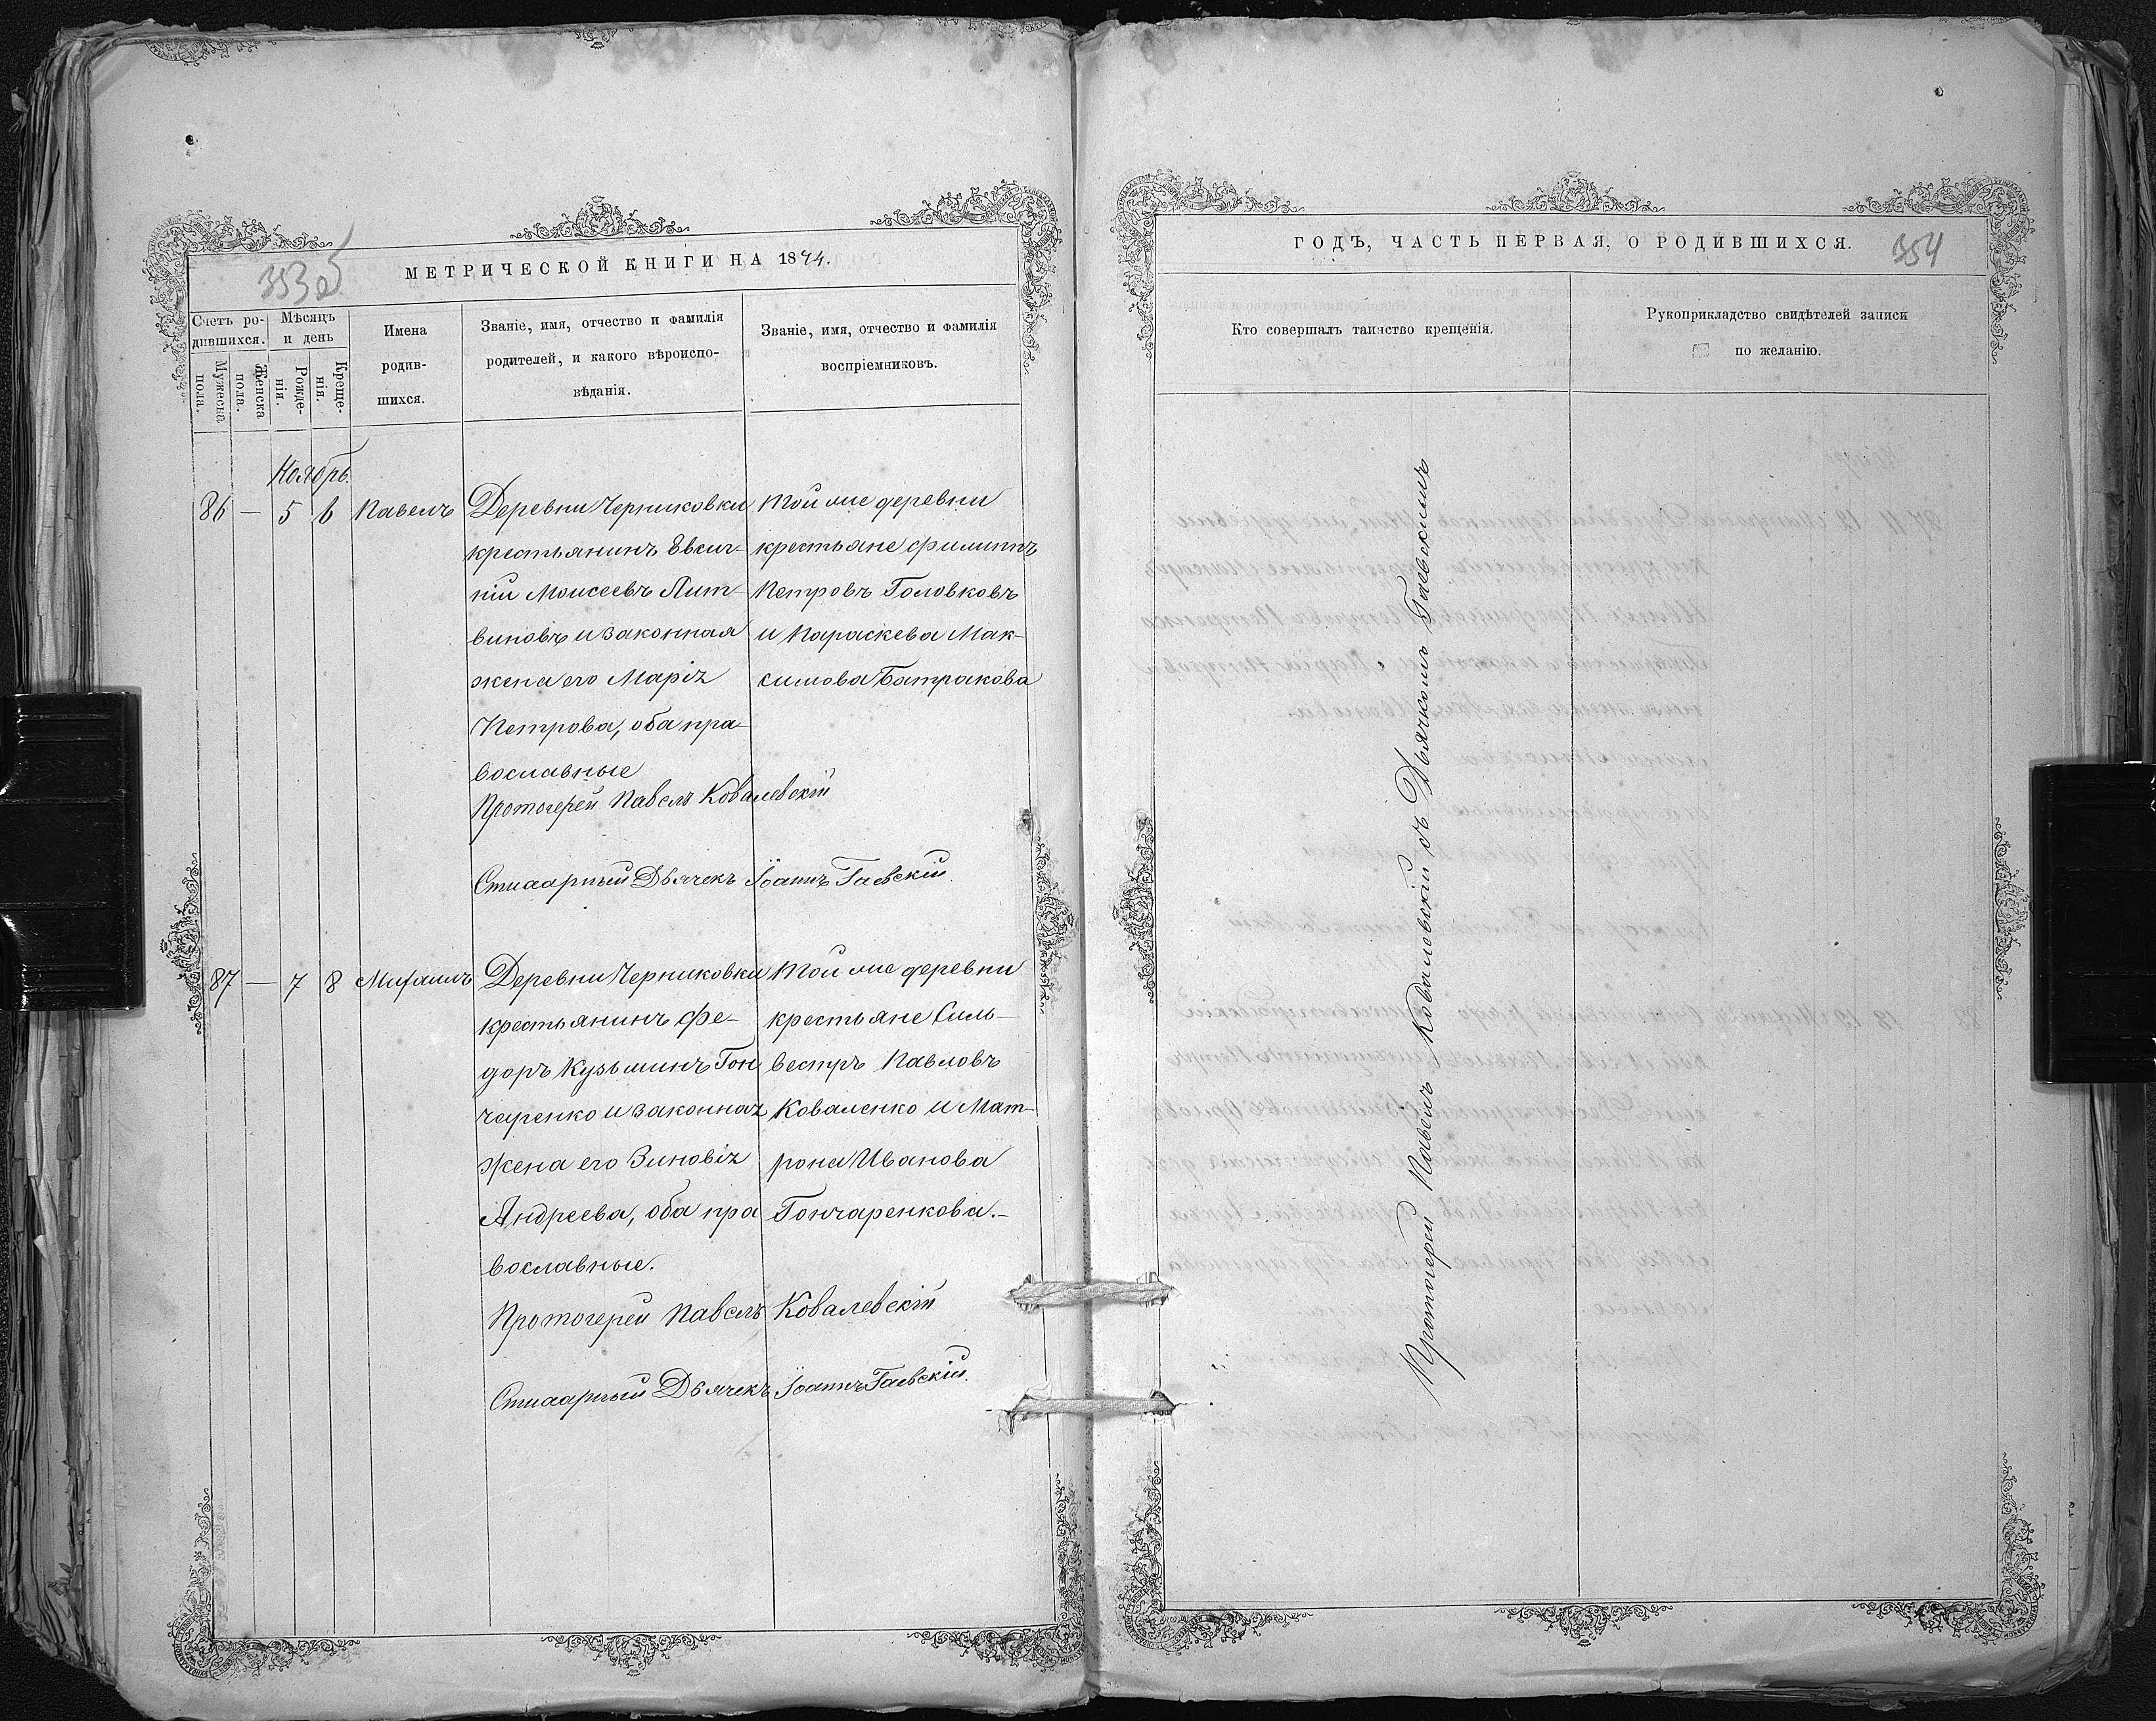 353об
МЕТРИЧЕСКОЙ КНИГИ НА 1874.
Счетъ ро-
дившихся.
Мужеска
пола.
Женска
пола.
Мѣсяцъ
и день
Рожде-
нія.
Креще-
нія.
Имена
родив-
шихся.
Званіе, имя, отчество и фамилія
родителей, и какого вѣроиспо-
вѣданія.
Званіе, имя, отчество и фамилія
воспріемниковъ.
Ноябрь.
86 — 5 6 Павелъ
Деревни Черниковки
крестьянинъ Евсиг-
ній Моисеевъ Лит-
виновъ и законная
жена его Марія
Петрова, оба пра-
вославные
Той же деревни
крестьяне Филиппъ
Петровъ Головковъ
и Параскева Мак-
симова Батракова
Протоіерей Павелъ Ковалевскій
Стихарный Дьячекъ Іоаннъ Гаевскій
87 — 7 8 Михаилъ
Деревни Черниковки
крестьянинъ Фе-
доръ Кузьминъ Гон
чаренко и законная
жена его Зиновія
Андреева, оба пра
вославные.
Той же деревни
крестьяне Силь-
вестръ Павловъ
Коваленко и Мат-
рона Иванова
Гончаренкова.-
Протоіерей Павелъ Ковалевскій
Стихарный Дьячекъ Іоаннъ Гаевскій.
ГОДЪ, ЧАСТЬ ПЕРВАЯ, О РОДИВШИХСЯ.
354
Кто совершалъ таинство крещенія.
Рукоприкладство свидѣтелей записи
по желанію.
Протоіерей Павелъ Ковалевскій съ Дьячкомъ Гаевскимъ